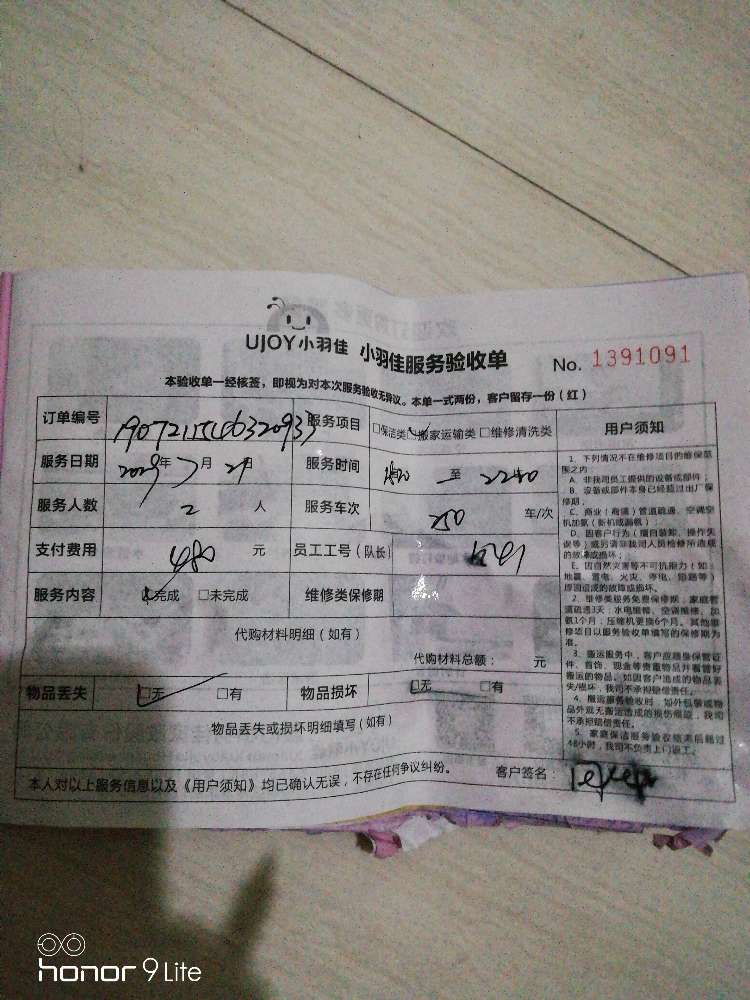 UJOY小羽佳 小羽佳服务验收单 No. 1391091
本验收单一经核签，即视为对本次服务验收无异议。本单一式两份，客户留存一份（红）
订单编号 1907211546320933 服务项目 □保洁类 □搬家运输类 □维修清洗类
服务日期 年 7月21日 服务时间 至
服务人数 2 人 服务车次 250 车/次
支付费用 480 元 员工工号(队长)
服务内容 □完成 □未完成 维修类保修期
代购材料明细（如有）
代购材料总额： 元
物品丢失 □无 □有 物品损坏 □无 □有
物品丢失或损坏明细填写（如有）
本人对以上服务信息以及《用户须知》均已确认无误，不存在任何争议纠纷。 客户签名：
用户须知
1、下列情况不在维修项目的维保范
围之内：
A、非我司员工提供的设备或部件；
B、设备或部件本身已经超过出厂保
修期；
C、商业（商铺）管道疏通、空调空
机加氟（新机或漏氟）；
D、因客户行为（擅自装卸、操作失
误等）或另请非我司人员检修所造成
的故障或损坏；
E、因自然灾害等不可抗力（如：
地震、雷电、火灾、停电、短路等）
原因造成的故障或损坏。
2、维修类服务免费保修期：家庭管
道疏通3天；水电维修、空调维修、加
氨1个月；压缩机更换6个月。其他维
修项目以服务验收单填写的保修期为
准。
3、搬运服务中，客户应自身保管证
件、首饰、现金等贵重物品并看管好
搬运的物品。如因客户造成的物品丢
失/损坏，我司不承担赔偿责任。
4、搬运服务验收时，如外包装或物
品外观无搬运造成的损伤痕迹，我司
不承担赔偿责任。
5、家庭保洁服务验收结束后超过
48小时，我司不负责上门返工。
honor 9 Lite